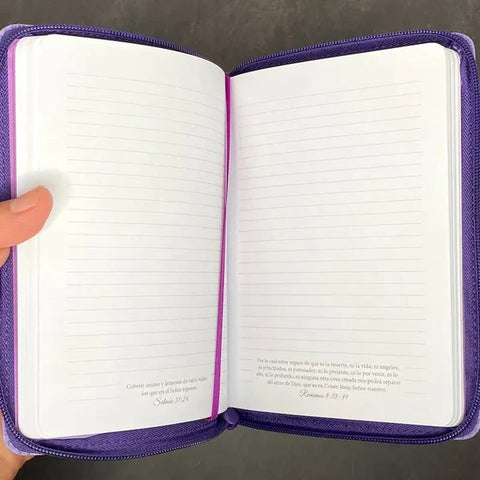 Cobren ánimo y ármense de valor, todos
los que en el Señor esperan.
Salmo 31:24
Por lo cual estoy seguro de que ni la muerte, ni la vida, ni ángeles,
ni principados, ni potestades, ni lo presente, ni lo por venir, ni lo
alto, ni lo profundo, ni ninguna otra cosa creada nos podrá separar
del amor de Dios, que es en Cristo Jesús Señor nuestro.
Romanos 8:38-39